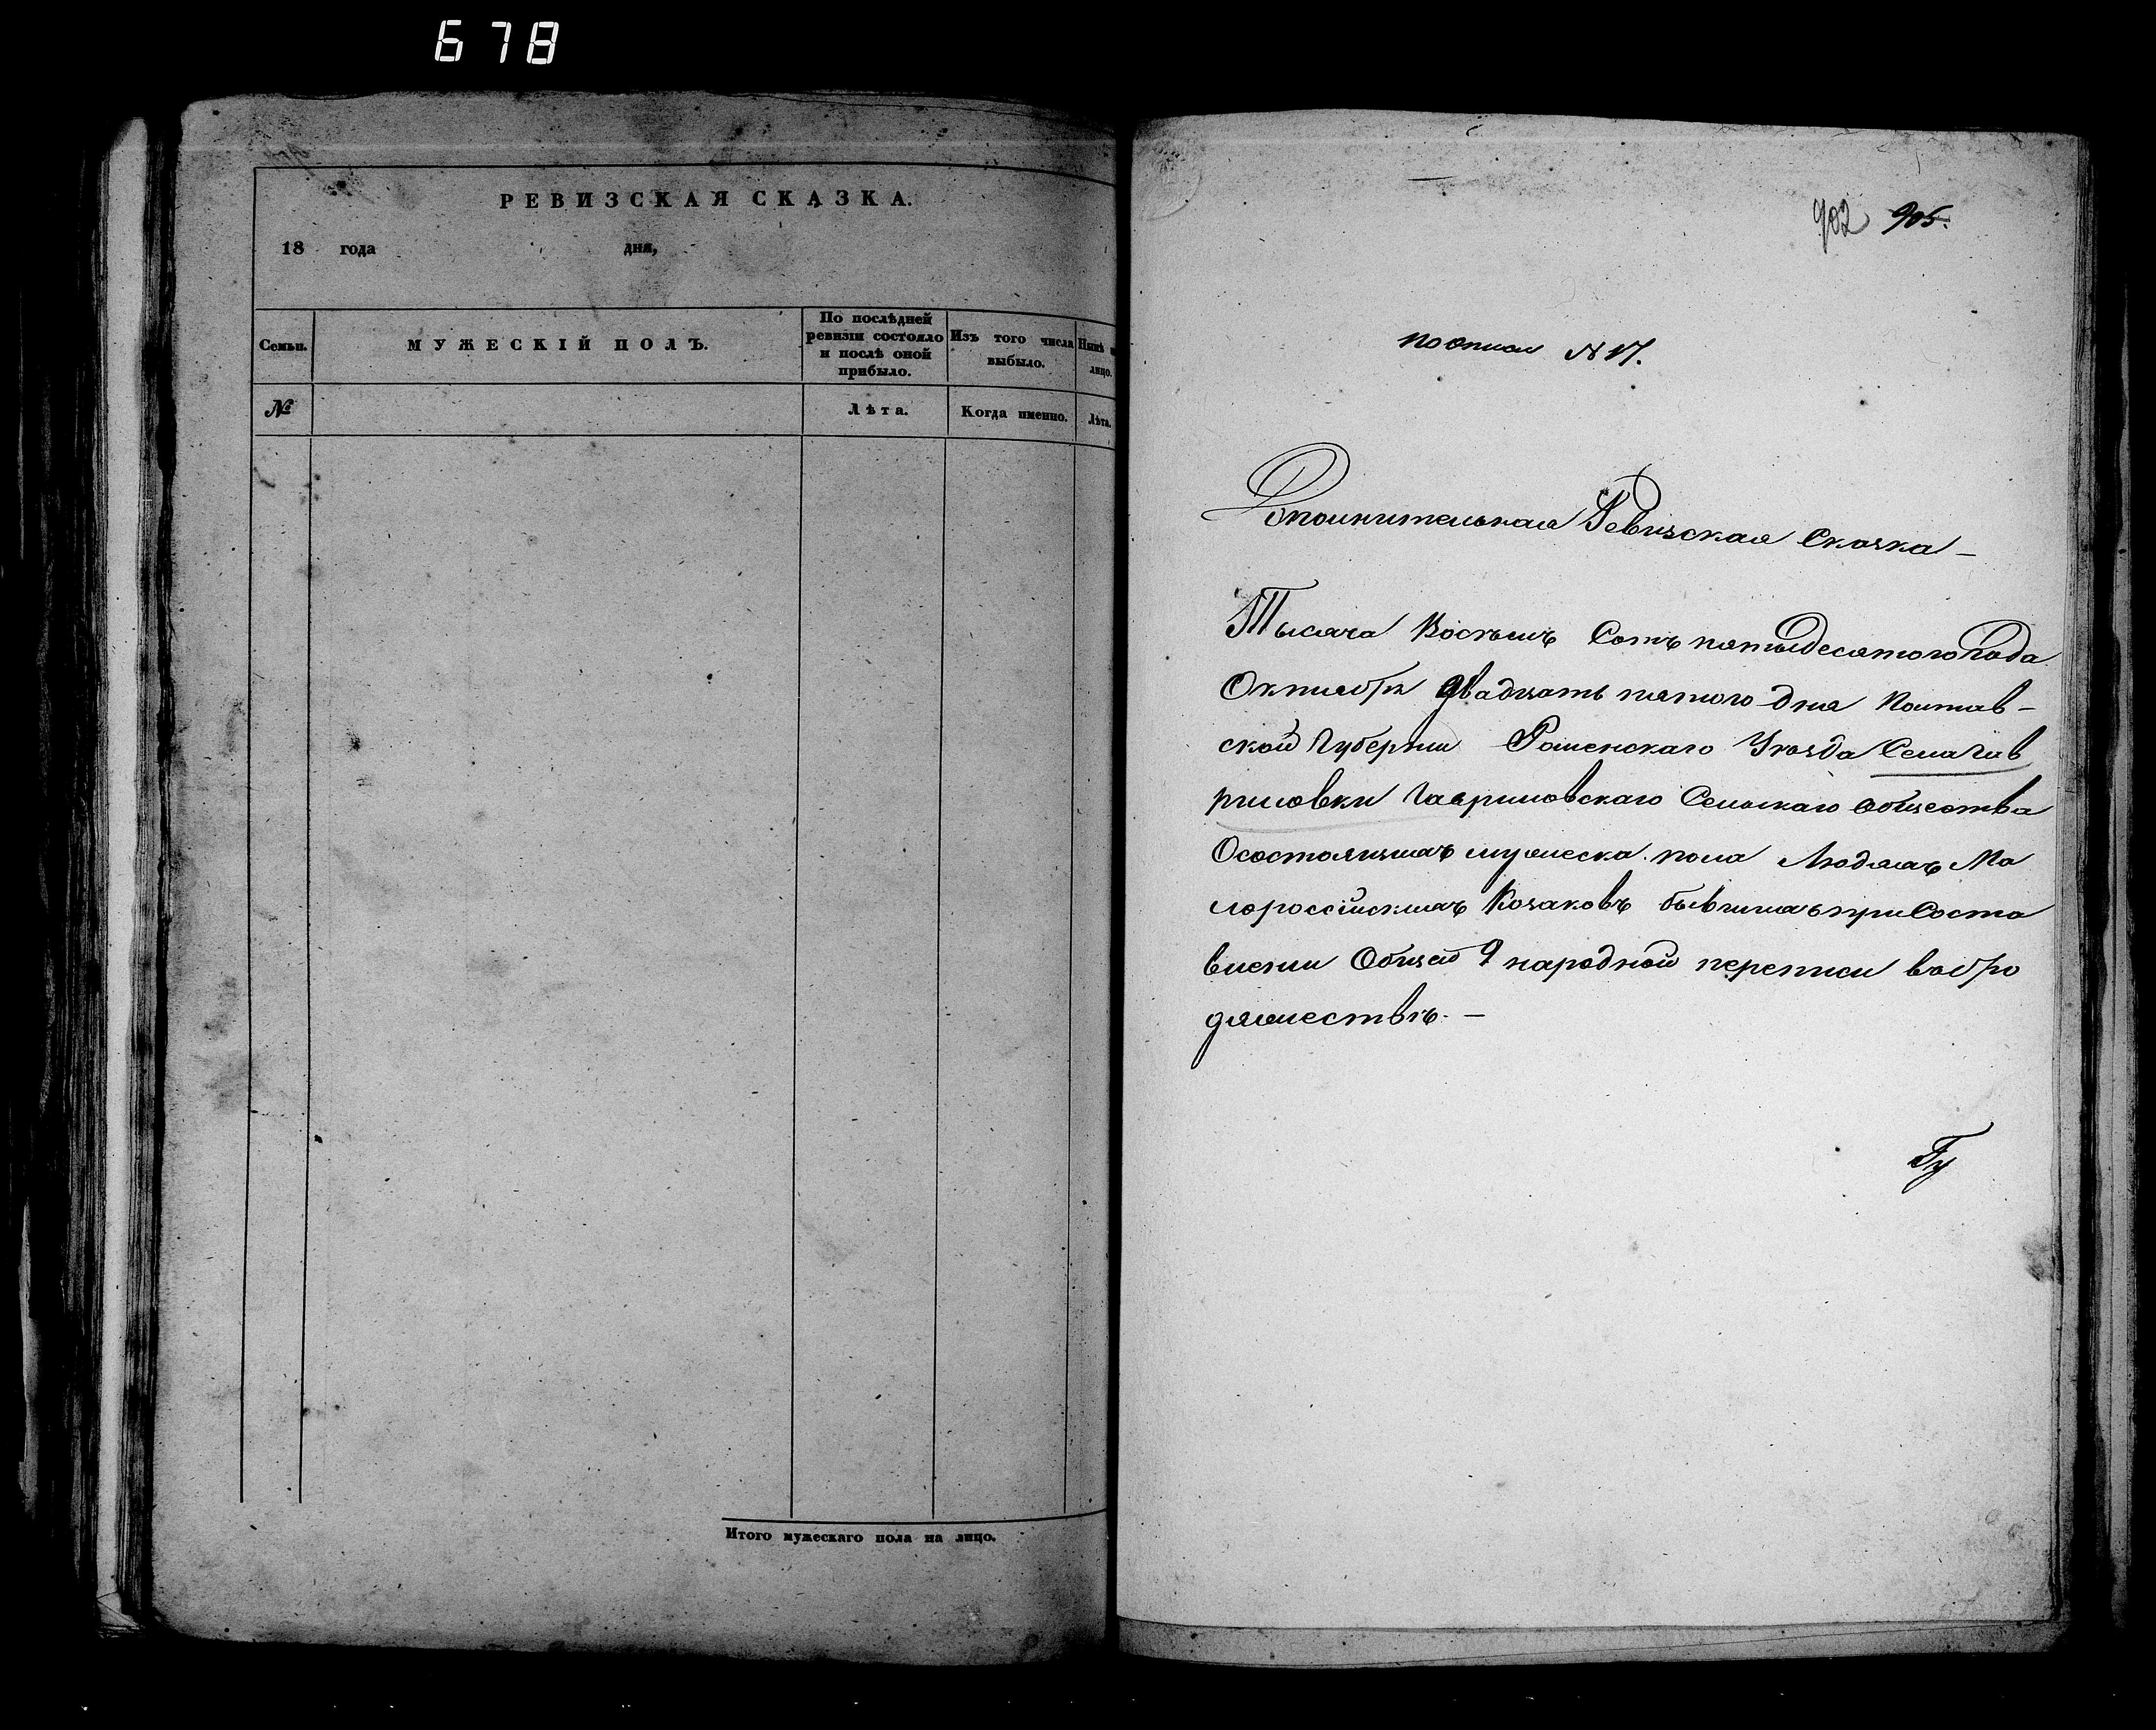 678
РЕВИЗСКАЯ СКАЗКА.
18 года дня,
Семьи.
МУЖЕСКІЙ ПОЛЪ.
По послѣдней
ревизіи состояло
и послѣ оной
прибыло.
Изъ того числа
выбыло.
Нынѣ
лицо.
№
Лѣта.
Когда именно.
Лѣта.
Итого мужескаго пола на лицо.
902 905.
по описи № 17.
Дополнительная Ревизская Сказка —
Тысяча Восемь Сотъ пятьдесятого Года
Октября двадцать пятого дня Полтав-
ской Губерніи Роменскаго Уезда Села Гав
риловки Гавриловскаго Сельскаго общества
О состоящихъ мужеска. пола Людяхъ Ма
лороссійскихъ Козаковъ бывшихъ при Соста
вленіи Общей 9 народной переписи въ бро
дяжествѣ. —
Гу